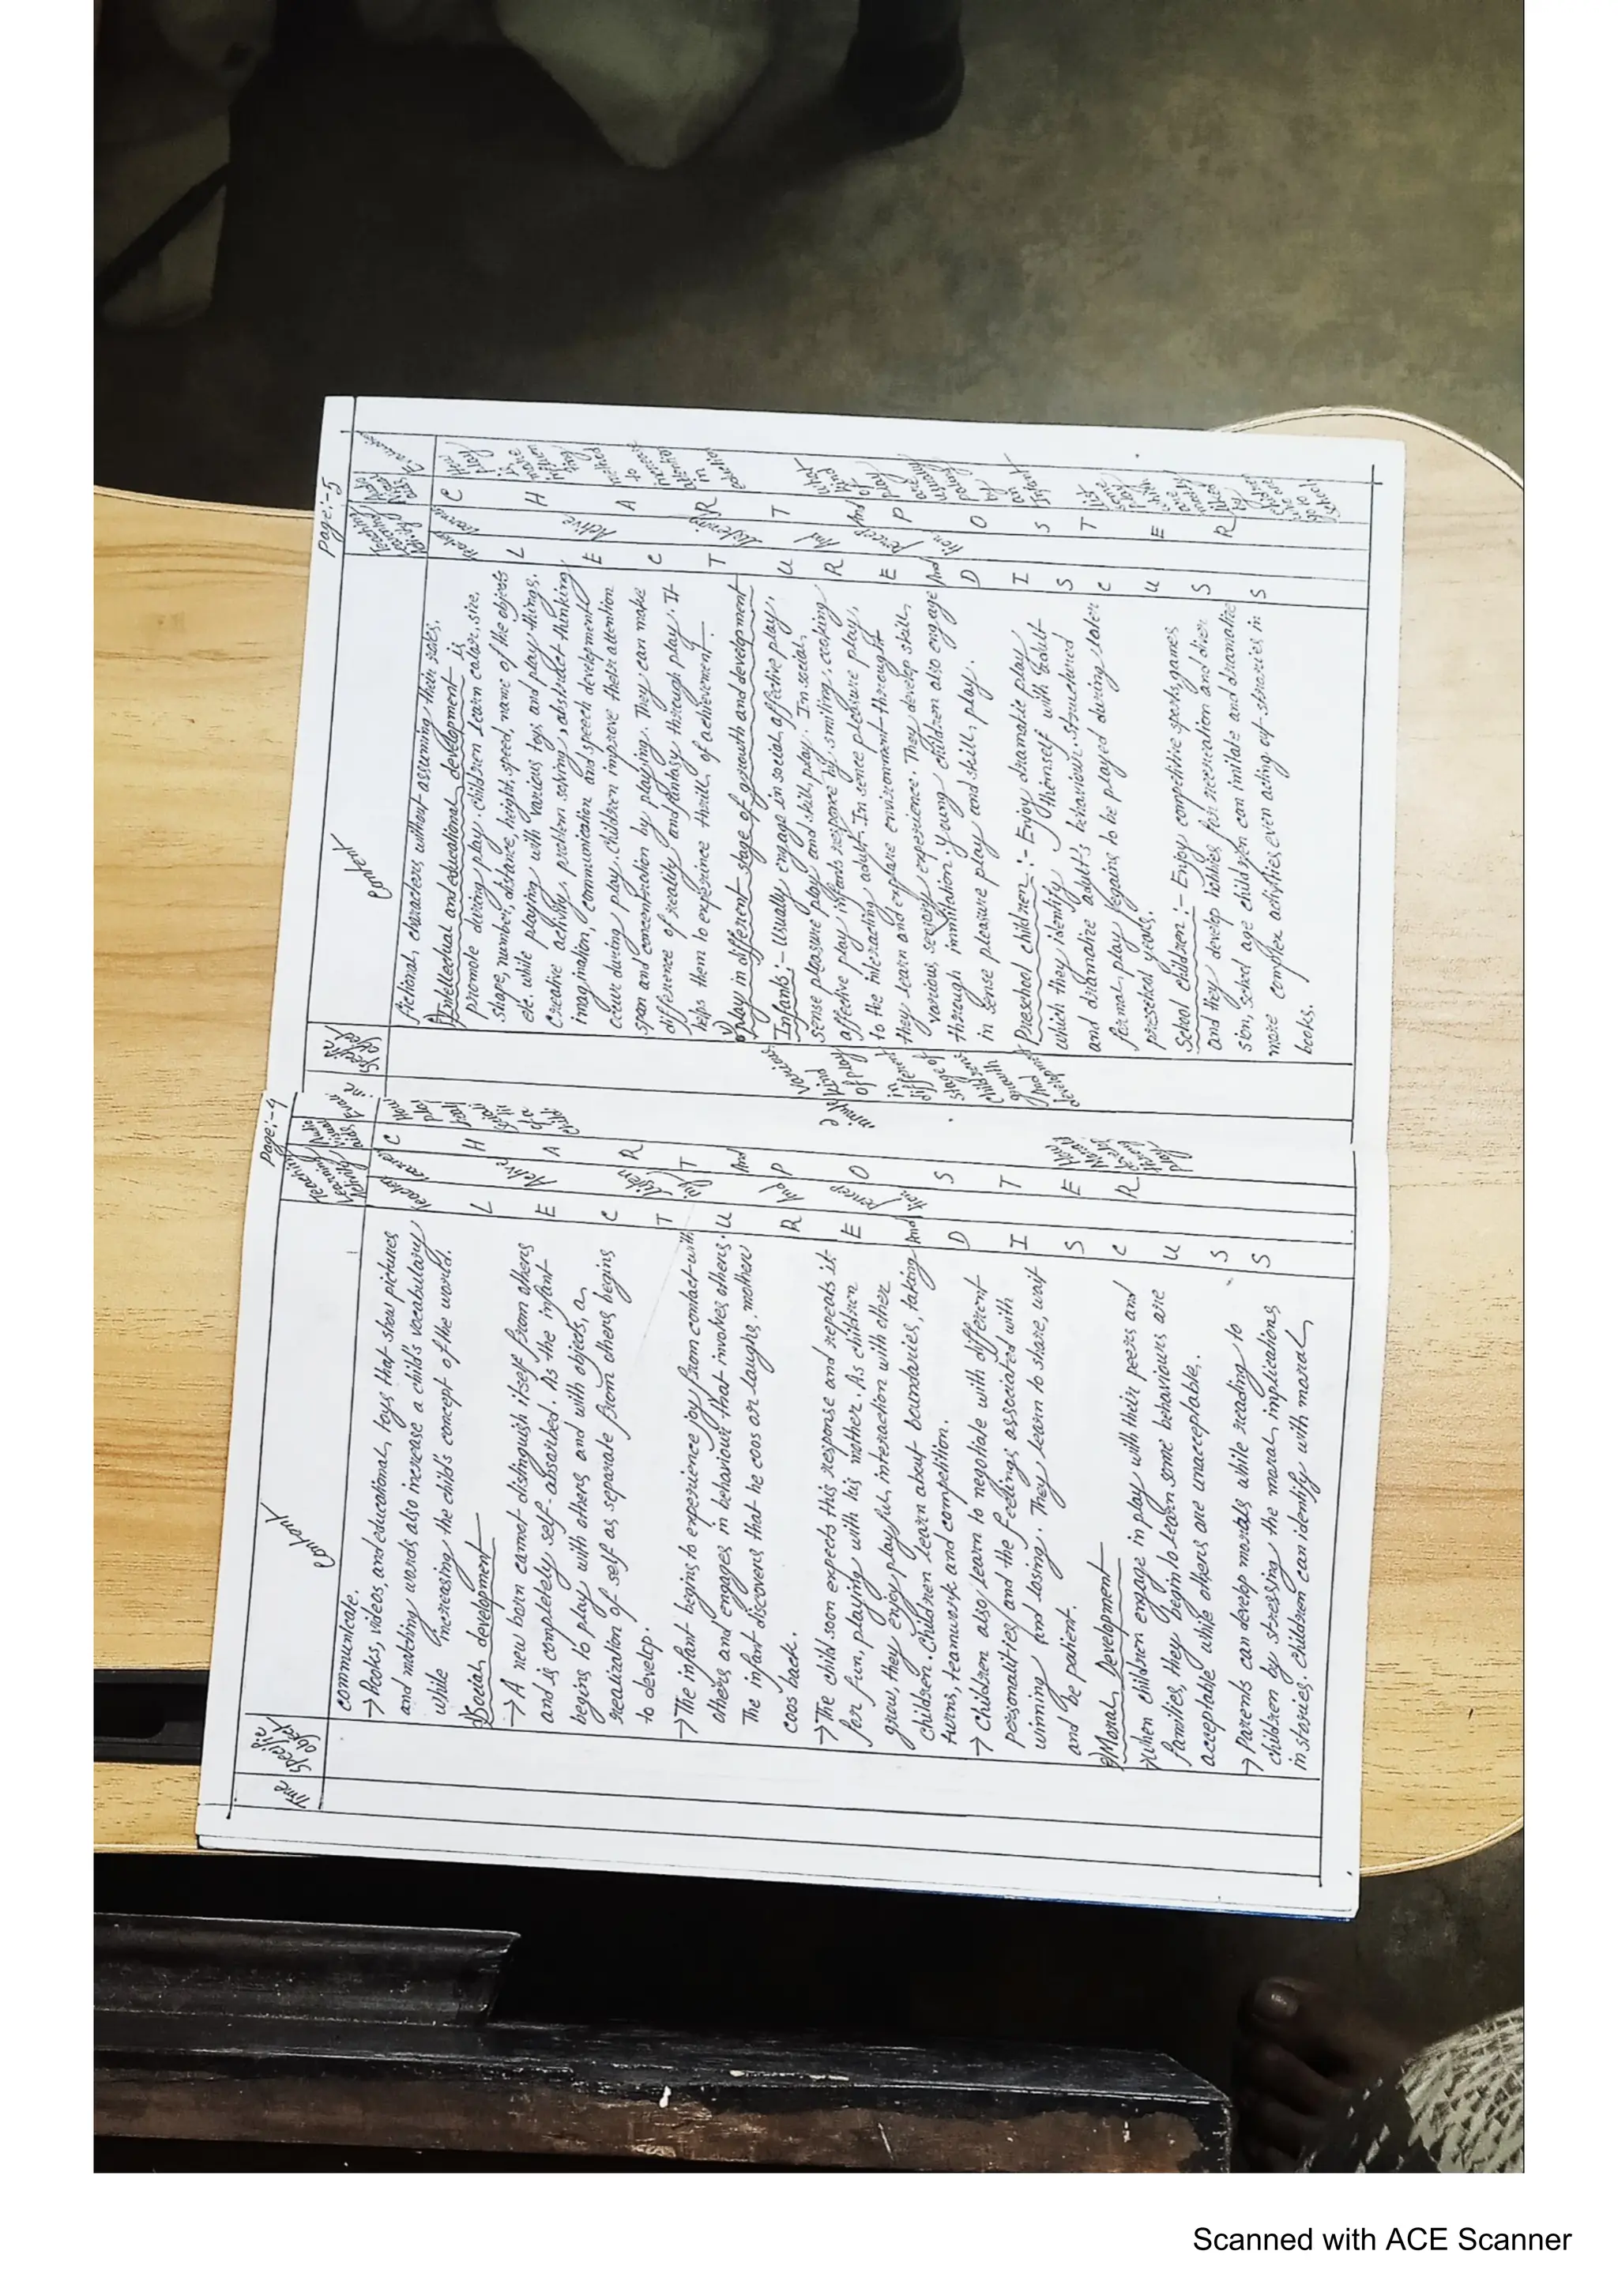 Page:-4
Time
Specific object
Content
Teaching Learning Activity
communicate.
→ Books, videos, and educational, toys that show pictures
and matching words also increase a child's vocabulary
while increasing the child's concept of the world.
d) Social, development
→ A new born cannot distinguish itself from others
and is completely self-absorbed. As the infant
begins to play with others and with objects, a
realization of self as separate from others begins
to develop.
→ The infant begins to experience joy from contact with
others and engages in behaviour that involves others.
The infant discovers that he coos or laughs, mother
coos back.
→ The child soon expects this response and repeats it
for fun, playing with his mother. As children
grow, they enjoy playful, interaction with other
children. Children learn about boundaries, taking
turns, teamwork and competition.
→ Children also, learn to negotiate with different
personalities and the feelings associated with
winning and losing. They learn to share, wait
and be patient.
e) Moral, Development
→ when children engage in play with their peers and
families, they begin to learn some behaviours are
acceptable while others are unacceptable.
→ Parents can develop morals while reading to
children by stressing the moral, implications,
in stories. children can identify with moral,
Teacher
L
E
C
T
U
R
E
And
D
I
S
C
U
S
S
Active
And
C
H
A
R
T
And
P
O
S
T
E
R
Page:-5
Specific object
Content
Teaching Learning Activity
fictional, characters without assuming their roles.
f) Intellectual and educational, development is
promote during play. children learn color, size,
shape, number, distance, height, speed, name of the objects
etc. while playing with various toys and play things.
Creative activity, problem solving, abstract thinking,
imagination, communication and speech development
occur during play. children improve their attention
span and concentration by playing. They can make
difference of reality and fantasy through play. It
helps them to experince thrill of achievement.
Play in different stage of growth and development
Infants :- Usually engage in social, affective play,
sense pleasure play and skill, play. In social,
affective play infants response by smiling, cooking
to the interacting adult. In sence pleasure play,
they learn and explore environment throught
various, sensory experience. They develop skill,
through immitation. Young children also engage
in sense pleasure play and skill, play.
Preschool children :- Enjoy dramatic play
which they identify themself with adult
and dramatize adult's behaviour. structured
formal, play begains to be played during later
preschool years.
School children :- Enjoy competitive sports, games
and they develop hobbies for recreation and diver
sion, school age children can imitate and dramatic
more complex activities even acting of strories in
books.
L
E
C
T
U
R
E
And
D
I
S
C
U
S
S
Active
listening
And
C
H
A
R
T
And
P
O
S
T
E
R
Scanned with ACE Scanner